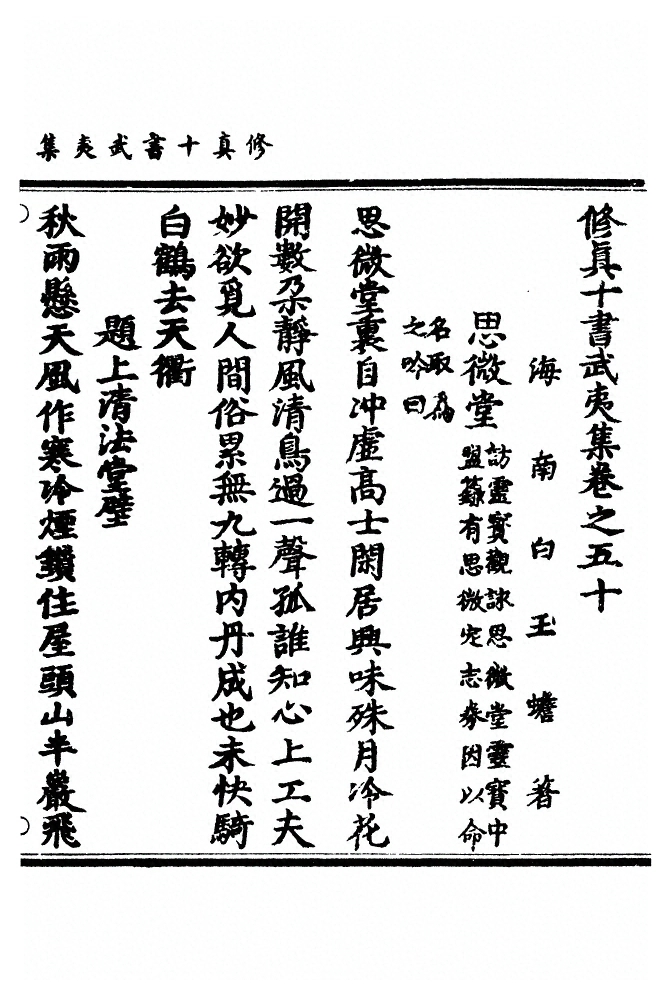 修真十書武夷集
修真十書武夷集卷之五十
海南白玉蟾著
思微堂
訪靈寳觀詠思微堂靈寳中
盟籙有思微定志劵因以命
名取為
之吟曰
思微堂裏自冲虛高士閑居興味殊月冷花
開數朶靜風清鳥過一聲孤誰知心上工夫
妙欲覓人間俗累無九轉内丹成也未快騎
白鶴去天衢
題上清法堂壁
秋雨懸天風作寒冷煙鎻住屋頭山半巖飛